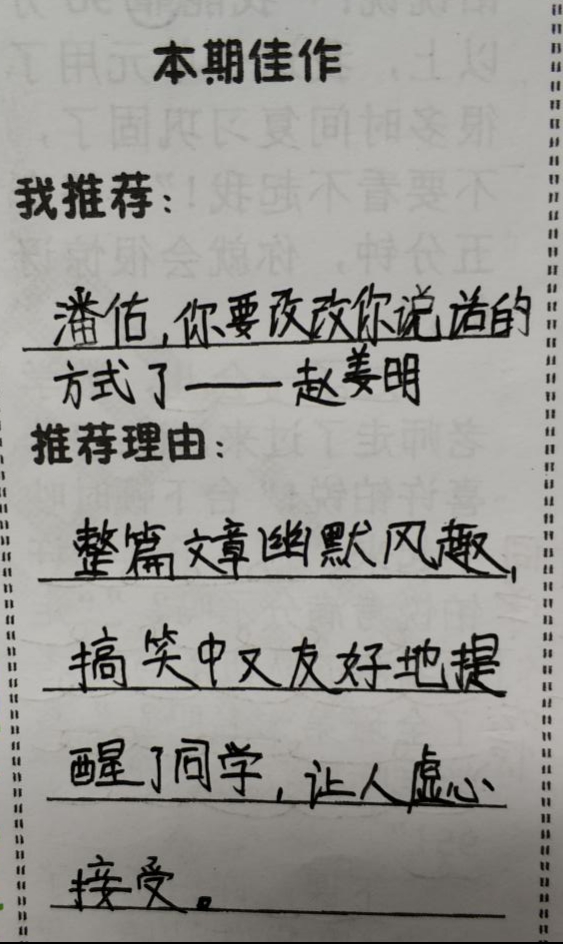 本期佳作
我推荐：
潘佑，你要改改你说话的
方式了——赵姜明
推荐理由：
整篇文章幽默风趣，
搞笑中又友好地提
醒了同学，让人虚心
接受。